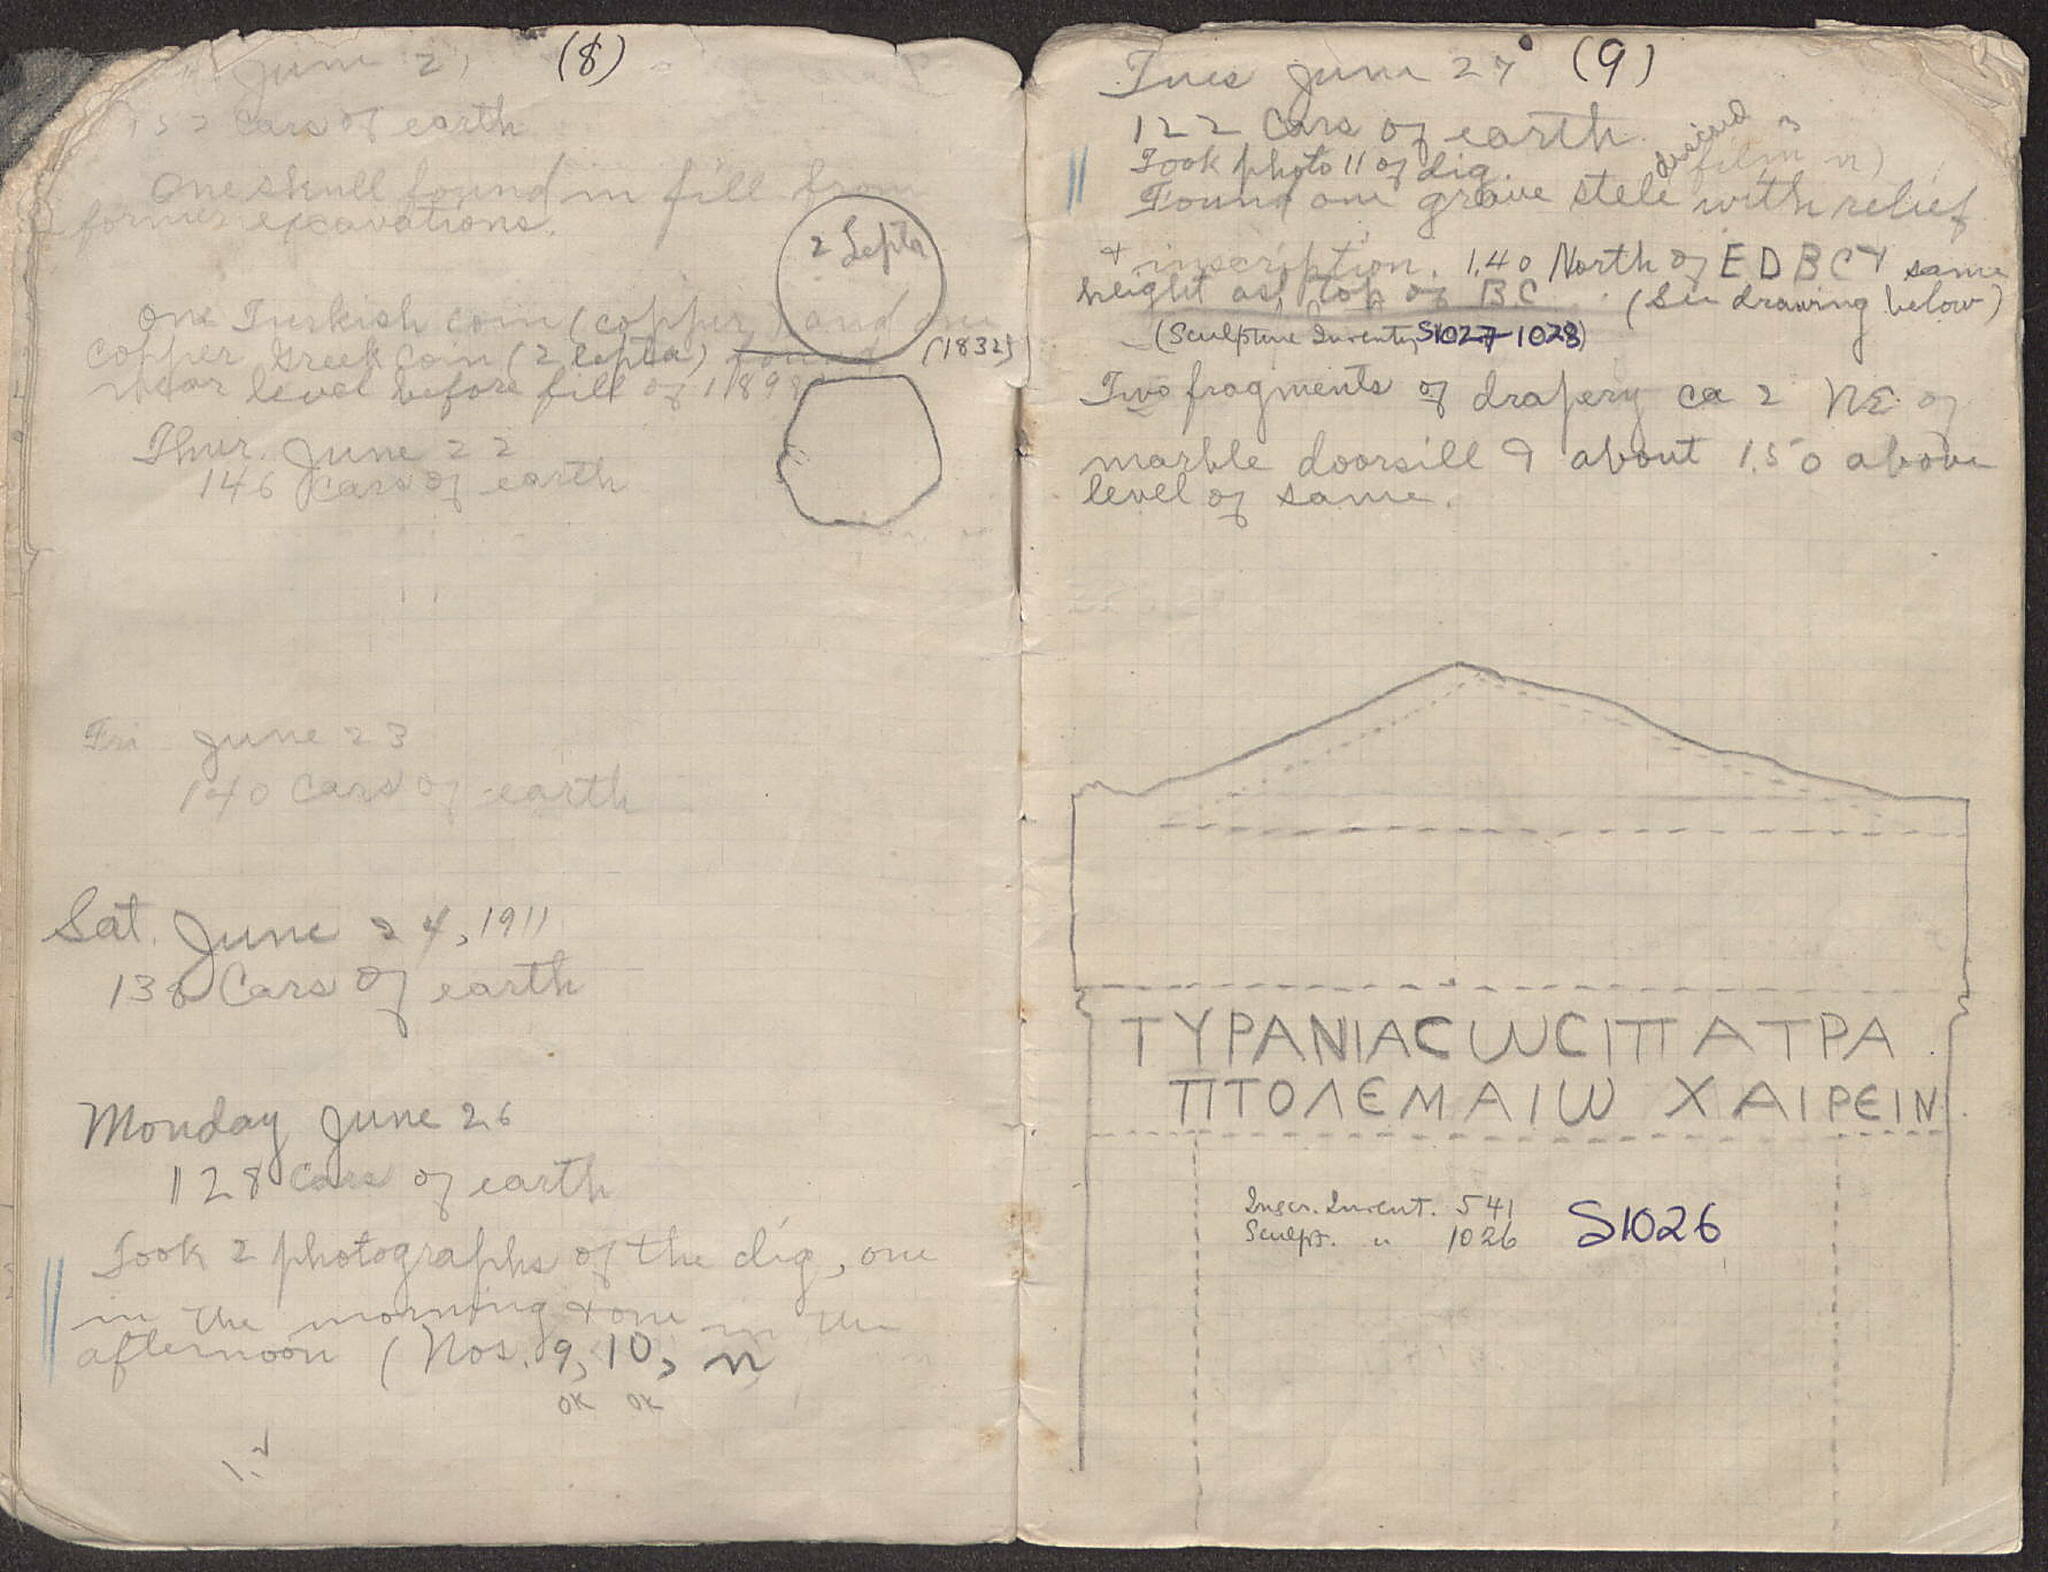 (8)
June 21
152 Cars of earth
One skull found in fill from
former excavations.
2 Lepta
One Turkish coin (copper) and one
copper Greek coin (2 lepta) found (1832)
near level before fill of 1898
Thur. June 22
146 Cars of earth
Fri June 23
140 Cars of earth
Sat. June 24, 1911
138 Cars of earth
Monday June 26
128 Cars of earth
Took 2 photographs of the dig, one
in the morning + one in the
afternoon (Nos. 9, 10,
OK OK
Tues June 27 (9)
122 Cars of earth
Took photo 11 of dig. discard film
Found one grave stele with relief
+ inscription. 1.40 North of EDBCY same
height as top of BC (See drawing below)
(Sculpture Inventy S1027-1028)
Two fragments of drapery ca 2 NE of
marble doorsill & about 1.50 above
level of same.
ΤΥΡΑΝΙΑCWCΙΠΑΤΡΑ
ΠΤΟΛΕΜΑΙW ΧΑΙΡΕΙΝ
Inscr. Invent. 541
Sculpt. " 1026 S1026